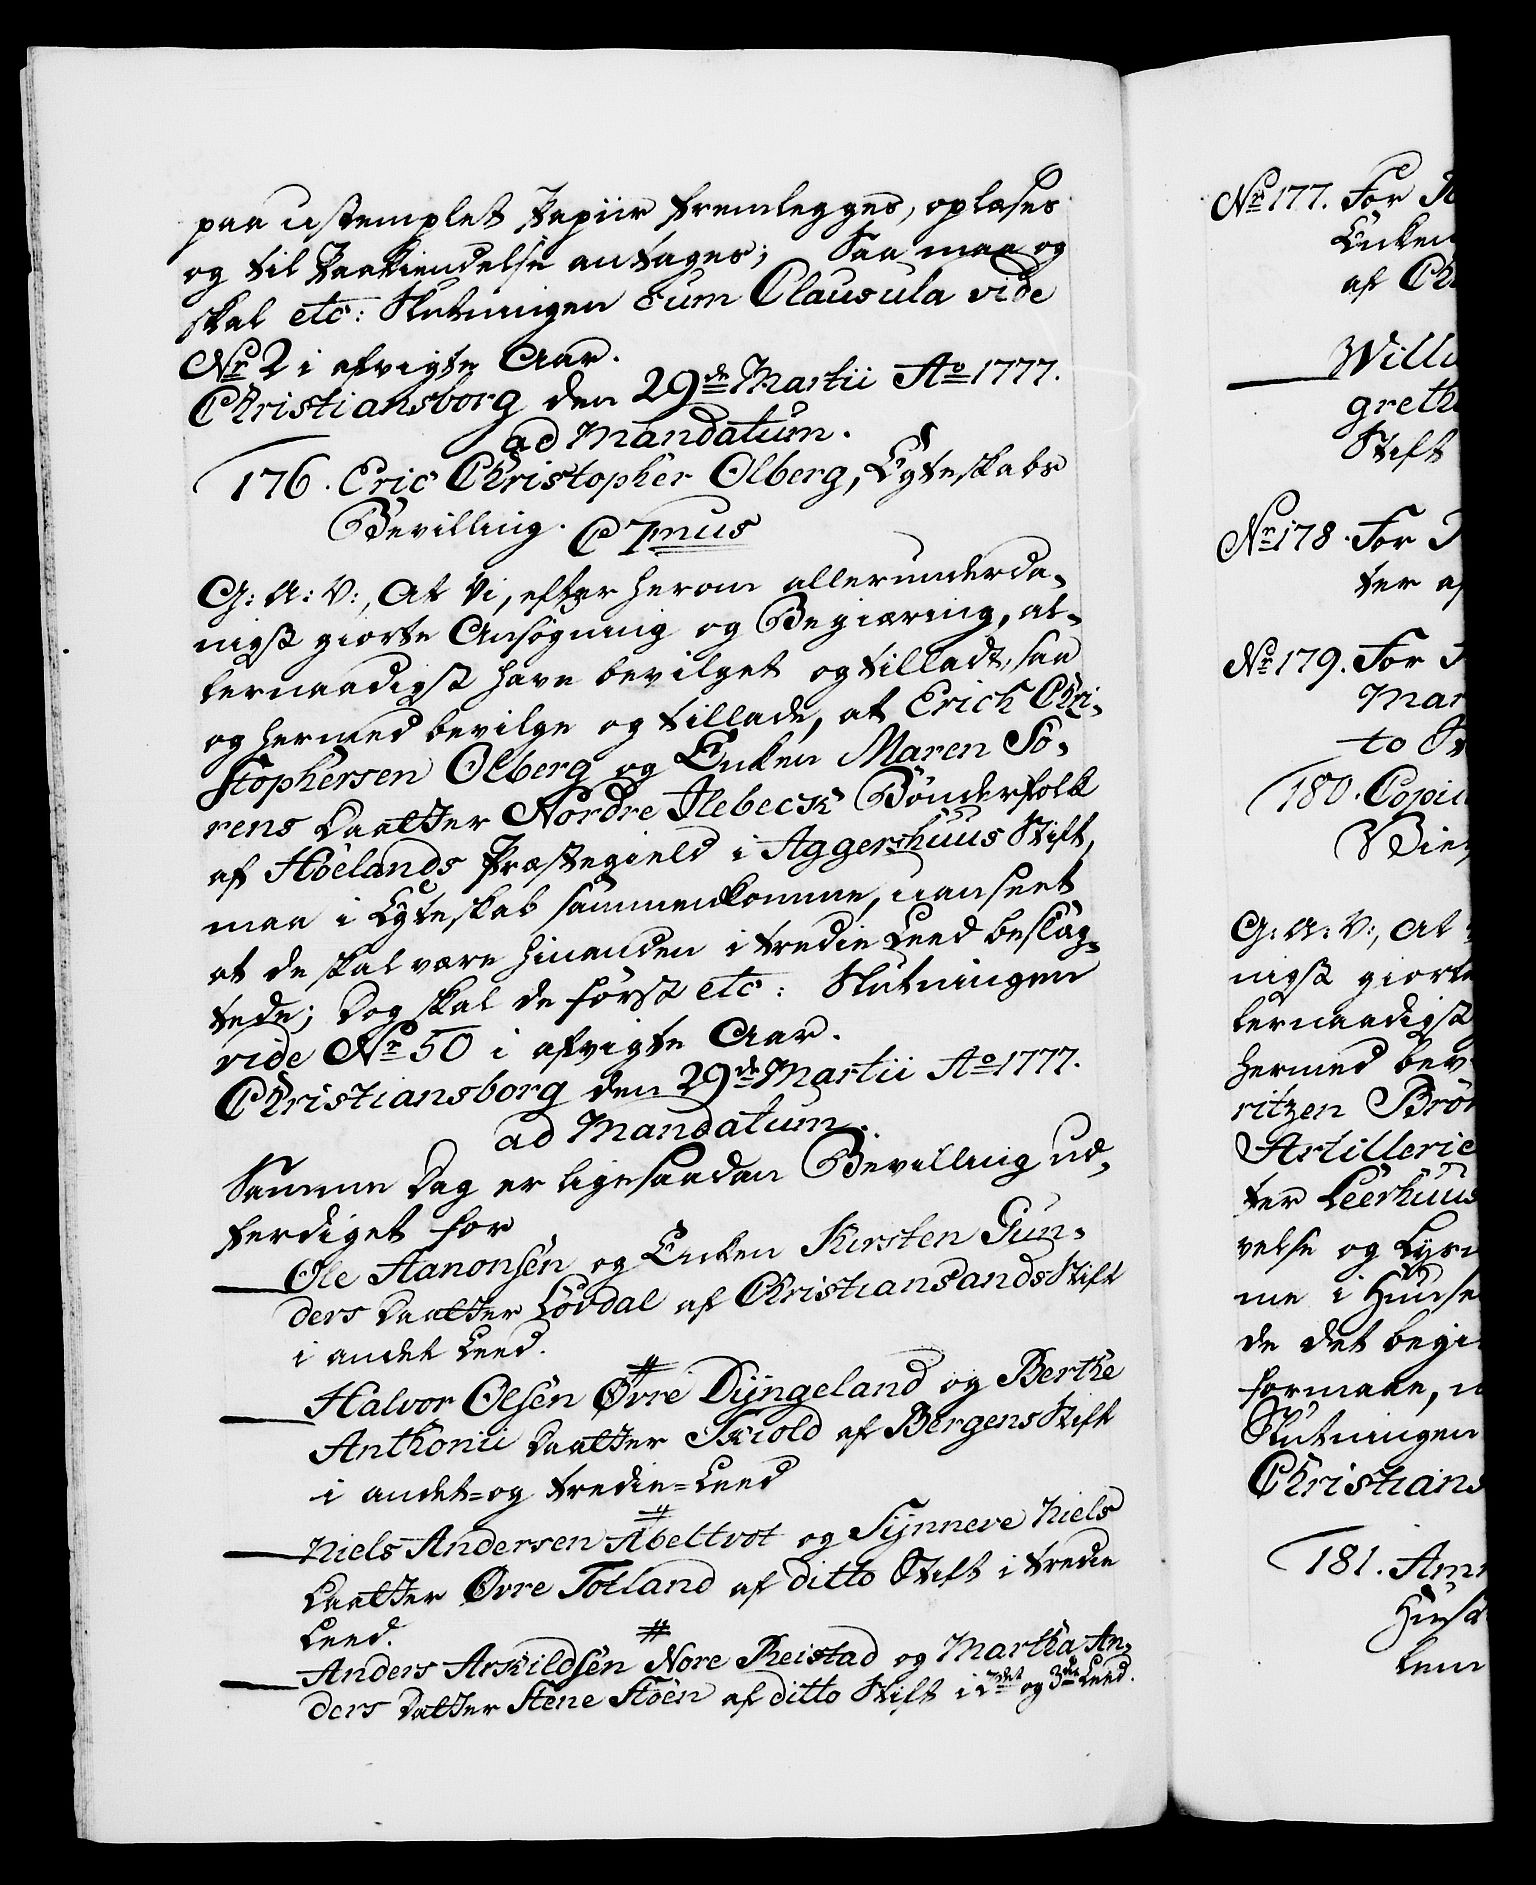 paa ustemplet Papiir fremlegges, oplæses
og til Paakiendelse antages; Saa maa og
skal etc: Slutningen cum Clausula vide
No 2 i afvigte Aar.
Christiansborg den 29de Martii Ao 1777.
ad Mandatum.
176. Eric Christopher Olberg, Egteskabs
Bevilling. C
G: A: V:, At Vi, efter herom allerunderda-
nigst giorte Ansøgning og Begiæring, al-
lernaadigst have bevilget og tilladt, saa
og hermed bevilge og tillade, at Erich Chri-
stophersen Olberg og Enken Maren Sø-
rens Daatter Nordre Ilebeck Bønderfolk
af Høelands Præstegield i Aggershuus Stift,
maa i Egteskab sammenkomme, uanseet
at de skal være hinanden i tredie Leed beslæg-
tede; Dog skal de først etc: Slutningen
vide No 50 i afvigte Aar.
Christiansborg den 29de Martii Ao 1777.
ad Mandatum.
Samme Dag er ligesaadan Bevilling ud-
ferdiget for
Ole Aanonsen og Enken Kirsten Gun-
ders Daatter Løvdal af Christiansands Stift
i andet Leed.
Halvor Olsen Øvre Dyngeland og Berthe
Anthonii Daatter Skiold af Bergens Stift
i andet- og tredie-Leed
Niels Andersen Abeltvot og Synneve Niels
Daatter Øvre Totland af ditto Stift i tredie
Leed.
Anders Arkildsen Nore Reistad og Martha An-
ders Datter Stene Støen af ditto Stift i 2det og 3die Leed.
No 177. For
Enken
af Ch
Will
greth
Stift
No 178. For
ter af
No 179. For
Mar
to
180. Copie
G: A: V:, At
nigst giorte
lernaadigst
hermed bev
ritzen Brøn
Artillerie
ter Leerhuus
velse og Lysn
me i Huuse
de det begi
formaae, u
Slutningen
Christians
181. Ann